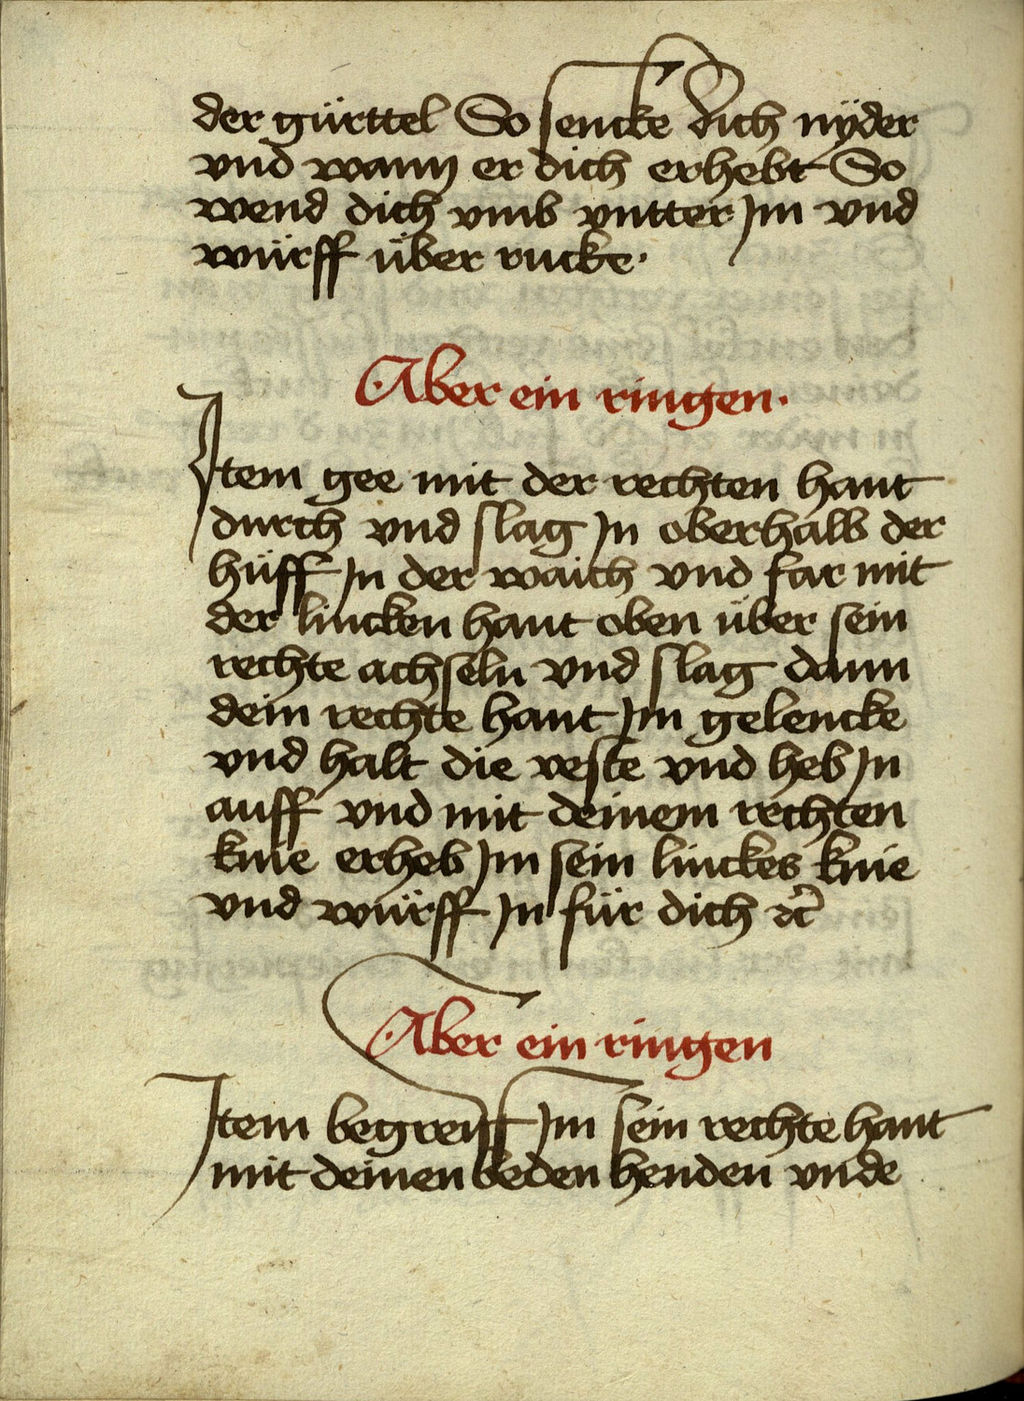 der gürttel So sencke dich nÿder
vnd wann er dich erhebt So
wend dich vmb vntter Jm vnd
würff über rucke.
Aber ein ringen.
Jtem gee mit der rechten hant
durch vnd slag Jn oberhalb der
hüff Jn der waich vnd far mit
der lincken hant oben über sein
rechte achseln vnd slag dann
dein rechte hant Jm gelencke
vnd halt die veste vnd heb Jn
auff vnd mit deinem rechten
knie erheb Jm sein linckes knie
vnd würff Jn für dich ⁊c̃
Aber ein ringen
Jtem begreiff Jm sein rechte hant
mit deinen beden henden vnde